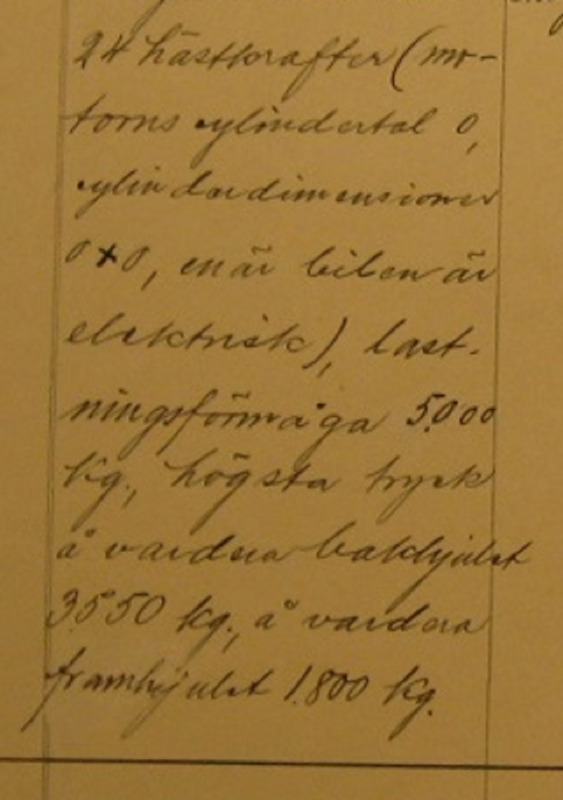 24 hästkrafter (mo-
torns cylindertal 0,
cylinderdimensioner
0×0, enär bilen är
elektrisk), last-
ningsförmåga 5.000
kg., högsta tryck
å vardera bakhjulet
3550 kg., å vardera
framhjulet 1.800 kg.